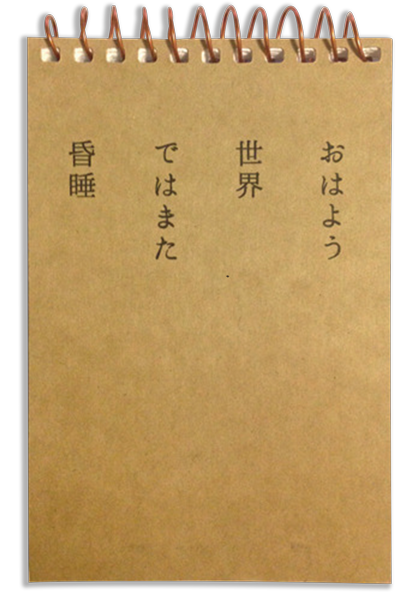 おはよう
世界
ではまた
昏睡